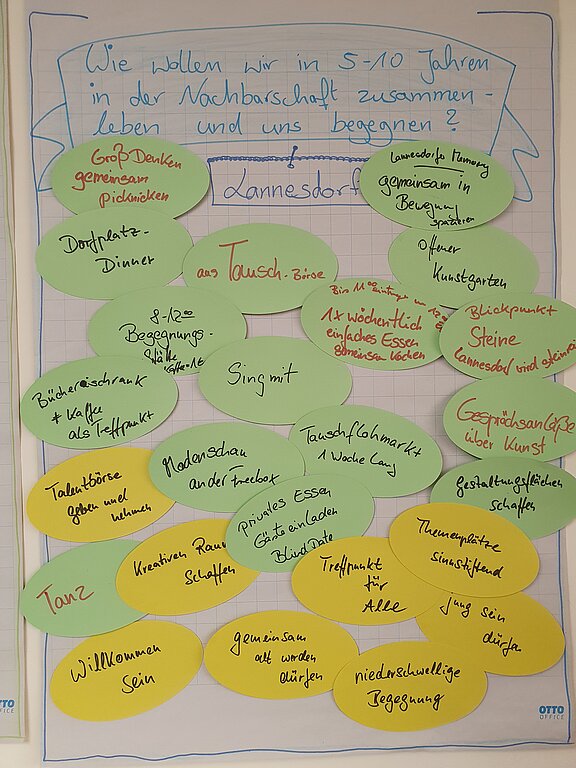 Wie wollen wir in 5-10 Jahren
in der Nachbarschaft zusammen-
leben und uns begegnen?
Lannesdorf
Groß Denken
gemeinsam
picknicken
Lannesdorfer Memory
gemeinsam in
Bewegung
spazieren
Dorfplatz-
Dinner
aus Tausch-Börse
Offener
Kunstgarten
8-12⁰⁰
Begegnungs-
Stätte
Kaffee 1€
Bis 11⁰⁰
1x wöchentlich
einfaches Essen
gemeinsam kochen
Blickpunkt
Steine
Lannesdorf wird steinrei
Büchereischrank
+ Kaffee
als Treffpunkt
Singmit
Gesprächsanläße
über Kunst
Modenschau
an der Freebox
Tauschflohmarkt
1 Woche lang
Talentbörse
geben und
nehmen
Gestaltungsflächen
schaffen
privates Essen
Gäste einladen
Blind Date
Themenplätze
sinnstiftend
Tanz
Kreativen Raum
schaffen
Treffpunkt
für
Alle
jung sein
dürfen
Willkommen
sein
gemeinsam
alt werden
dürfen
niederschwellige
Begegnung
OTTO
OFFICE
OTTO
OFFICE